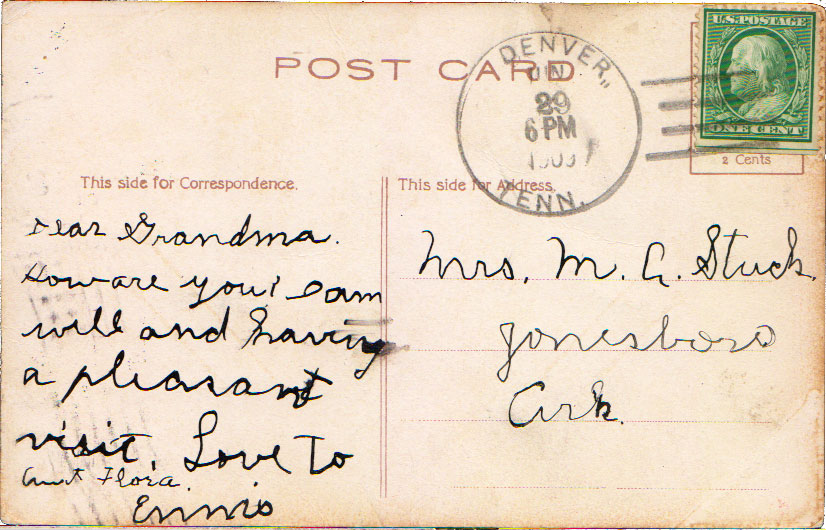 POST CARD
DENVER,
JUN
29
6 PM
1909
TENN.
U.S. POSTAGE
ONE CENT
2 Cents
This side for Correspondence.
This side for Address.
Dear Grandma.
How are you? I am
will and having
a pleasant
visit. Love to
Aunt Flora.
Ennis
Mrs. M. A. Stuck.
Jonesboro
Ark.